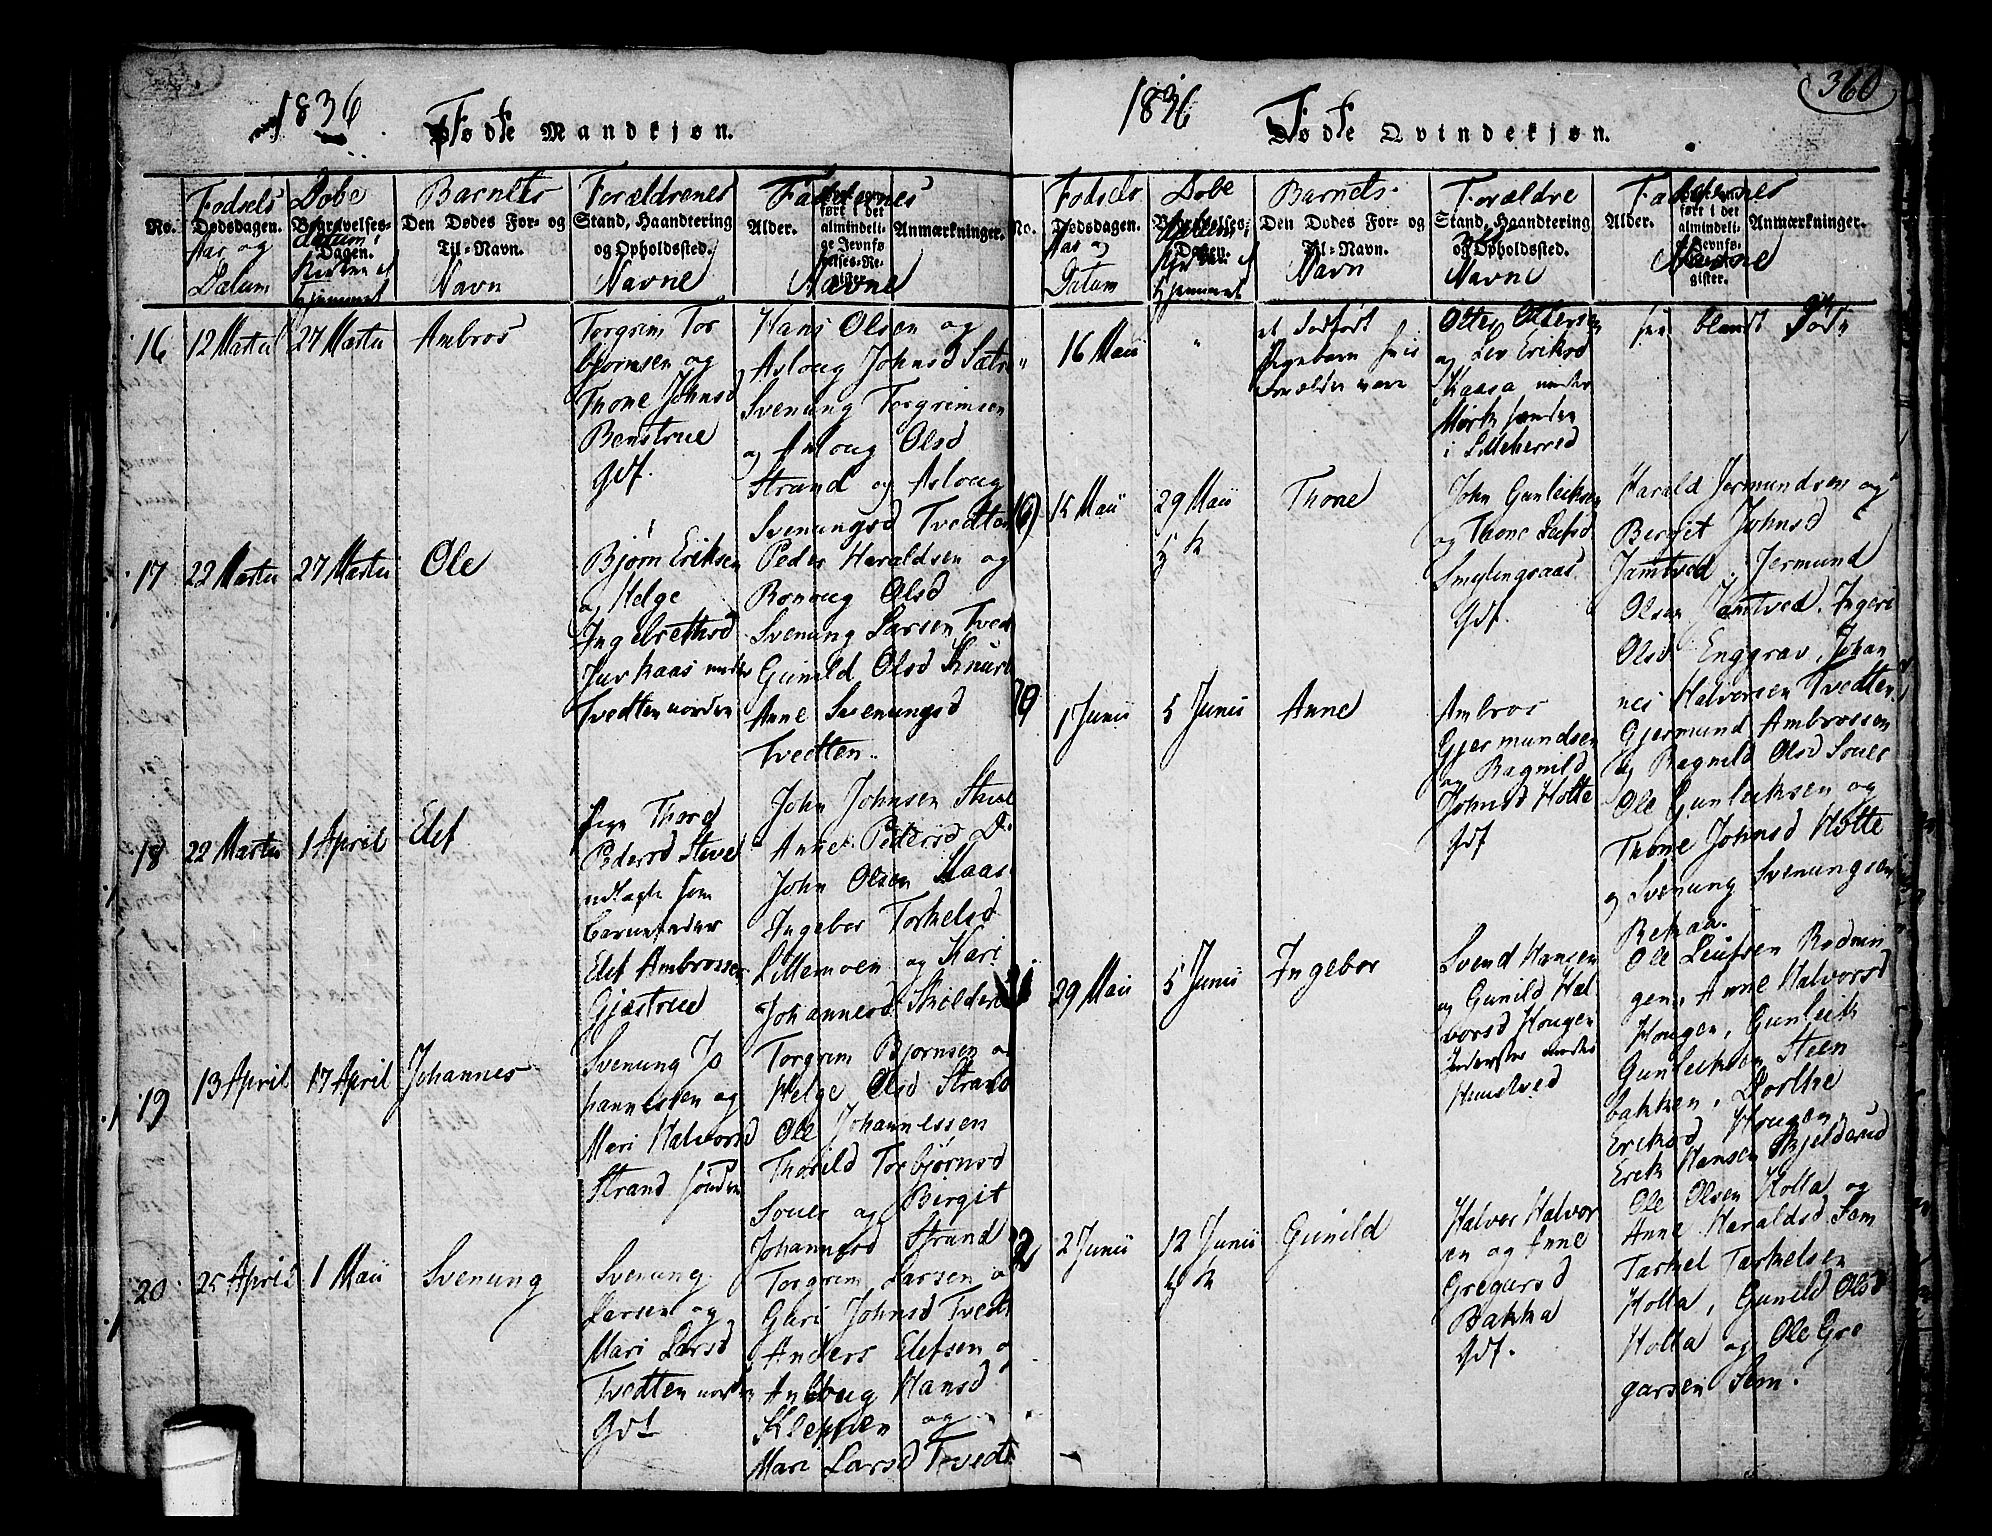 1836 Fødte Mandkjøn.
No.
Fødsels Dødsdagen. Aar og Datum
Døbe Begravelses-Dagen. datum i Kirken el Hjemmet
Barnets Den Dødes For- og Til-Navn. Navn
Forældrenes Stand, Haandtering og Opholdssted. Navne
Faddernes Alder. ført i det almindelige Jevnførelses-Register. Anmærkninger. Navne
16 12 Martii 27 Martii Ambros
Torgrim Tor
bjørnsen og
Thone Johnsd
Benstrue
Gdf.
Hans Olsen og
Asloug Johnsd
Svenung Torgrimsen
og Asloug Olsd
Strand og Asloug
Svenungsd Tvedten
17 22 Martii 27 Martii Ole
Bjørn Eriksen
og Helge
Ingebrethsd
Juvkaas under
Tvedten norden
Peder Haraldsen og
Ronoug Olsd
Svenung Larsen Tvedt
Gunild Olsd
Anne Svenungsd
Tvedten.
18 22 Martii 1 April Elef
Pige Thore
Pedersd
udlagte som
barnefader
Elef Ambrossen
Gjæstrue
John Johnsen
Anne Pedersd
John Olsen Kaas
Ingebor Torkelsd
Lillemoen og Kari
Johannesd
19 13 April 17 April Johannes
Svenung Jo
hannessen og
Mari Halvorsd
Strand sønden
Torgrim Bjørnsen og
Helge Olsd Strand
Ole Johannessen
Thorild Torbjørnsd
Soues og Birgit
Johannesd Strand
20 25 April 1 Maii Svenung
Svenung
Larsen og
Mari Larsd
Tvedten norden
Gdf
Torgrim Larsen og
Guri Johnsd Tvedt
Anders Elefsen og
Asloug Hansd
Kleppen og
Mari Larsd Tvedt
1836 Fødte Qvindekjøn. 360
No.
Fødsels Dødsdagen. Aar og Datum
Døbe Begravelses-Dagen. Hjemmet
Barnets Den Dødes For- og Til-Navn. Navn
Forældre Stand, Haandtering og Opholdssted. Navne
Faddernes Alder. ført i det almindelige Jevnførelses-Register. Anmærkninger. Navne
" 16 Maii "
et dødfødt
Pigebarn hvis
Forældre vare
Olter Oltersen
og Liv Eriksd
Kaasa under
Mørk sønden
i Lilleherred
see blandt Døde
15 Maii 29 Maii Thone
John Gunleiksen
og Thone
Smylingsaas.
Gdf.
Harald Jermundsen og
Bergit Johnsd
Jamtved, Jermund
Olsen Jamtved, Ingeri
Olsd Enggrav, Johan
nes Halvorsen Tvedten
1 Junii 5 Junii Anne
Ambros
Gjermundsen
og Ragnild
Johnsd Hotte
Gdf
Gjermund Ambrossen
og Ragnild Olsd Soues
Ole Gunleiksen og
Thone Johnsd Hotte
og Svenung Svenungsen
Rekaa.
29 Maii 5 Junii Ingebor
Svend Hansen
og Gunild Hal
vorsd Hougen
Inderster under
Ole Leifsen Rodnin
gen, Anne Halvorsd
Hougen, Gunleik
Gunleiksen Steen
bakken, Dorthe
Eriksd Hougen
Erik Hansen Skjelderud
2 Junii 12 Junii Gunild
Halvor Halvor
sen og Anne
Gregarsd
Bakka
Gdf.
Ole Olsen Holla og
Anne Haraldsd Sem
Tarkel Tarkelsen
Holla, Gunild Olsd
Holla og Ole Gre
garsen Sem.